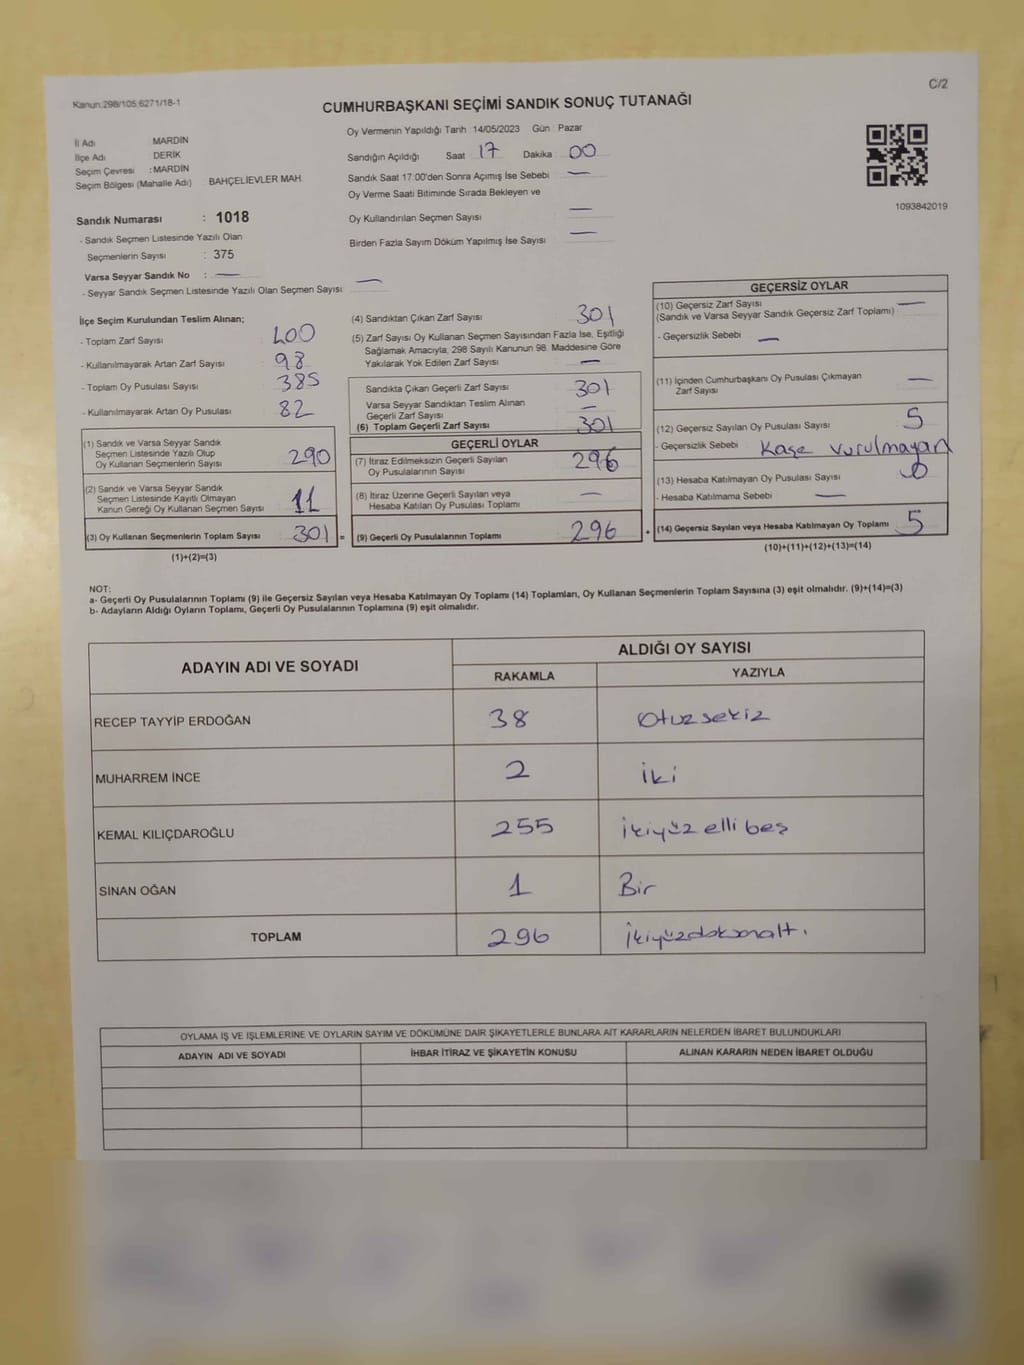 Kanun:298/105;6271/18-1
C/2
CUMHURBAŞKANI SEÇİMİ SANDIK SONUÇ TUTANAĞI
İl Adı MARDİN
İlçe Adı DERİK
Seçim Çevresi : MARDİN
Seçim Bölgesi (Mahalle Adı) BAHÇELİEVLER MAH.
Sandık Numarası : 1018
- Sandık Seçmen Listesinde Yazılı Olan
Seçmenlerin Sayısı : 375
Varsa Seyyar Sandık No : —
- Seyyar Sandık Seçmen Listesinde Yazılı Olan Seçmen Sayısı: —
Oy Vermenin Yapıldığı Tarih : 14/05/2023 Gün : Pazar
Sandığın Açıldığı Saat 17 Dakika : 00
Sandık Saat 17:00'den Sonra Açımış İse Sebebi —
Oy Verme Saati Bitiminde Sırada Bekleyen ve
Oy Kullandırılan Seçmen Sayısı —
Birden Fazla Sayım Döküm Yapılmış İse Sayısı —
1093842019
İlçe Seçim Kurulundan Teslim Alınan;
- Toplam Zarf Sayısı : 400
- Kullanılmayarak Artan Zarf Sayısı : 98
- Toplam Oy Pusulası Sayısı : 385
- Kullanılmayarak Artan Oy Pusulası : 82
(1) Sandık ve Varsa Seyyar Sandık
Seçmen Listesinde Yazılı Olup
Oy Kullanan Seçmenlerin Sayısı : 290
(2) Sandık ve Varsa Seyyar Sandık
Seçmen Listesinde Kayıtlı Olmayan
Kanun Gereği Oy Kullanan Seçmen Sayısı : 11
(3) Oy Kullanan Seçmenlerin Toplam Sayısı : 301 =
(1)+(2)=(3)
(4) Sandıktan Çıkan Zarf Sayısı : 301
(5) Zarf Sayısı Oy Kullanan Seçmen Sayısından Fazla İse, Eşitliği
Sağlamak Amacıyla, 298 Sayılı Kanunun 98. Maddesine Göre
Yakılarak Yok Edilen Zarf Sayısı : —
Sandıkta Çıkan Geçerli Zarf Sayısı : 301
Varsa Seyyar Sandıktan Teslim Alınan
Geçerli Zarf Sayısı : —
(6) Toplam Geçerli Zarf Sayısı : 301
GEÇERLİ OYLAR
(7) İtiraz Edilmeksizin Geçerli Sayılan
Oy Pusulalarının Sayısı : 296
(8) İtiraz Üzerine Geçerli Sayılan veya
Hesaba Katılan Oy Pusulası Toplamı : —
(9) Geçerli Oy Pusulalarının Toplamı : 296 +
GEÇERSİZ OYLAR
(10) Geçersiz Zarf Sayısı : —
(Sandık ve Varsa Seyyar Sandık Geçersiz Zarf Toplamı)
- Geçersizlik Sebebi : —
(11) İçinden Cumhurbaşkanı Oy Pusulası Çıkmayan
Zarf Sayısı : —
(12) Geçersiz Sayılan Oy Pusulası Sayısı : 5
- Geçersizlik Sebebi : Kaşe vurulmayan
(13) Hesaba Katılmayan Oy Pusulası Sayısı : 0
- Hesaba Katılmama Sebebi : —
(14) Geçersiz Sayılan veya Hesaba Katılmayan Oy Toplamı : 5
(10)+(11)+(12)+(13)=(14)
NOT:
a- Geçerli Oy Pusulalarının Toplamı (9) ile Geçersiz Sayılan veya Hesaba Katılmayan Oy Toplamı (14) Toplamları, Oy Kullanan Seçmenlerin Toplam Sayısına (3) eşit olmalıdır. (9)+(14)=(3)
b- Adayların Aldığı Oyların Toplamı, Geçerli Oy Pusulalarının Toplamına (9) eşit olmalıdır.
ADAYIN ADI VE SOYADI ALDIĞI OY SAYISI
RAKAMLA YAZIYLA
RECEP TAYYİP ERDOĞAN 38 otuzsekiz
MUHARREM İNCE 2 iki
KEMAL KILIÇDAROĞLU 255 ikiyüz elli beş
SİNAN OĞAN 1 Bir
TOPLAM 296 ikiyüzdoksanaltı
OYLAMA İŞ VE İŞLEMLERİNE VE OYLARIN SAYIM VE DÖKÜMÜNE DAİR ŞİKAYETLERLE BUNLARA AİT KARARLARIN NELERDEN İBARET BULUNDUKLARI
ADAYIN ADI VE SOYADI İHBAR İTİRAZ VE ŞİKAYETİN KONUSU ALINAN KARARIN NEDEN İBARET OLDUĞU